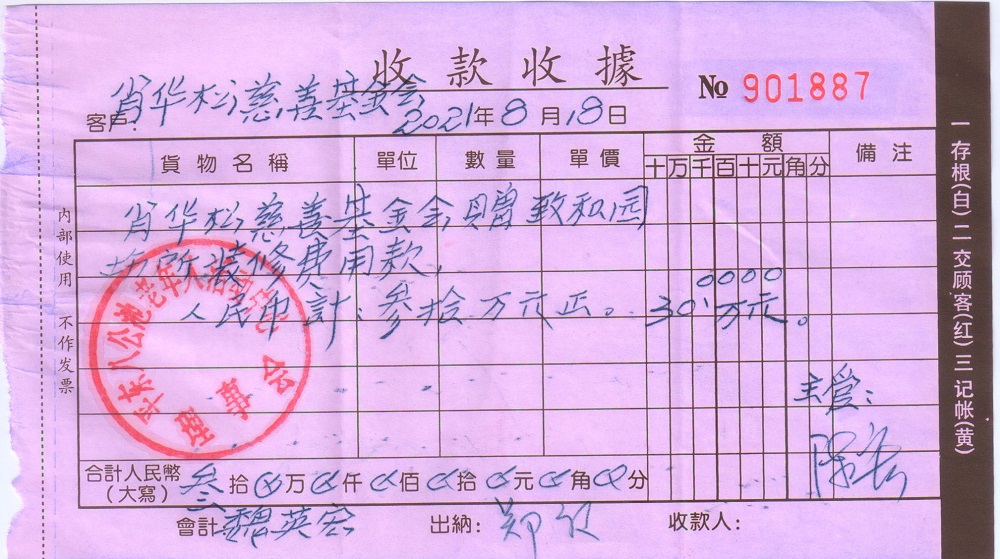 收款收據
№ 901887
客户: 肖华松慈善基金会
2021年8月18日
貨物名稱 單位 數量 單價 金額 備注
十万千百十元角分
肖华松慈善基金会赠致和园
场所装修费用款,
0000
人民币計:叁拾万元正。 30万元。
主管:
合計人民幣(大寫) 叁拾 万 仟 佰 拾 元 角 分
會計: 魏英宏 出納: 郑 收款人:
内部使用 不作发票
八公池老年人活动
理事会
一存根(白)二交顾客(红)三记帐(黄)